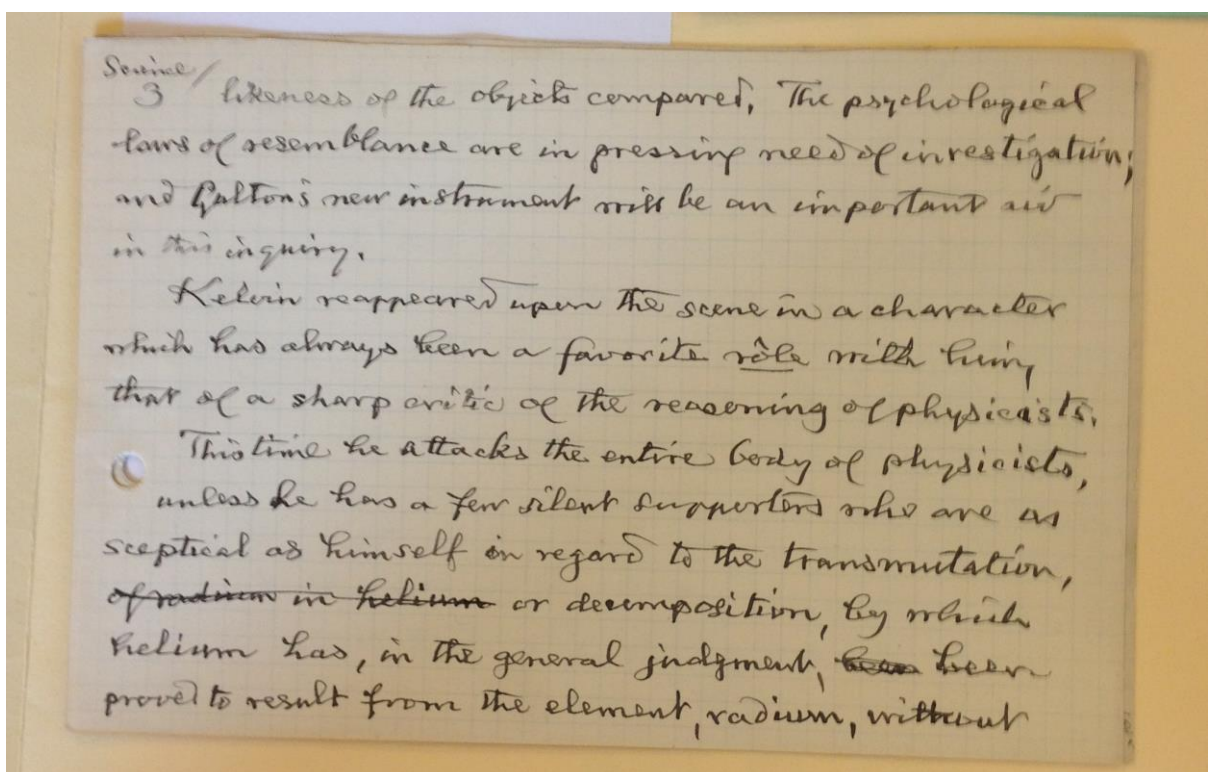 Science/
3 likeness of the objects compared. The psychological
laws of resemblance are in pressing need of investigation;
and Galton's new instrument will be an important aid
in this inquiry.
Kelvin reappeared upon the scene in a character
which has always been a favorite rôle with him,
that of a sharp critic of the reasoning of physicists.
This time he attacks the entire body of physicists,
unless he has a few silent supporters who are as
sceptical as himself in regard to the transmutation,
of radium in helium or decomposition, by which
helium has, in the general judgment, been been
proved to result from the element, radium, without